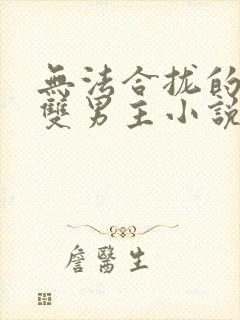 無法合拢的
雙男主小說
詹醫生